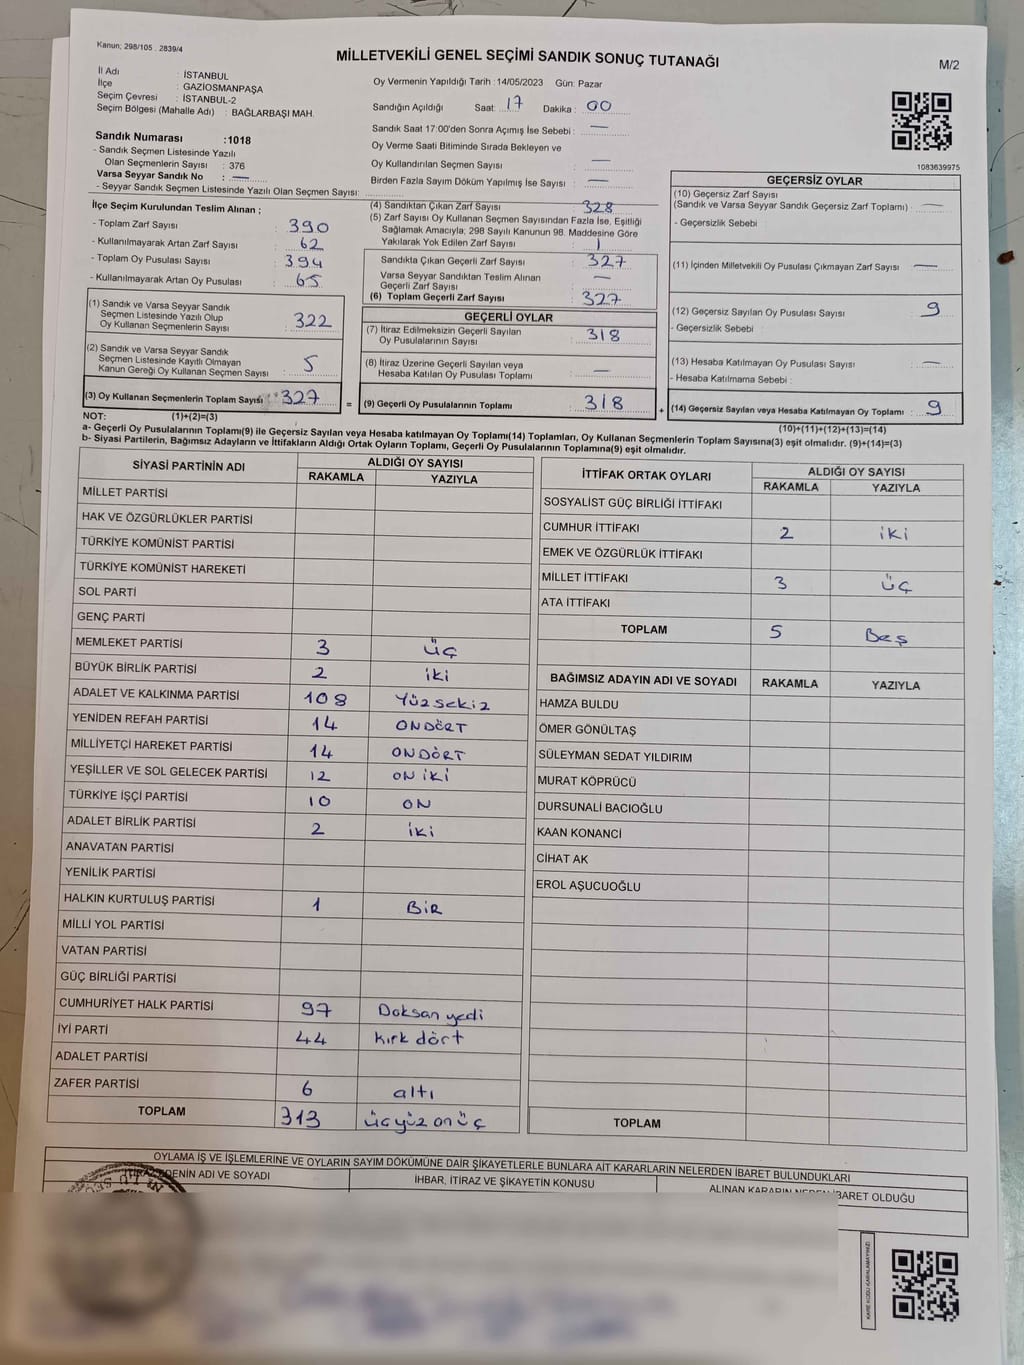 Kanun; 298/105 . 2839/4
MİLLETVEKİLİ GENEL SEÇİMİ SANDIK SONUÇ TUTANAĞI
M/2
İl Adı : İSTANBUL
İlçe : GAZİOSMANPAŞA
Seçim Çevresi : İSTANBUL-2
Seçim Bölgesi (Mahalle Adı) : BAĞLARBAŞI MAH.
Sandık Numarası :1018
- Sandık Seçmen Listesinde Yazılı
Olan Seçmenlerin Sayısı : 376
Varsa Seyyar Sandık No : —
- Seyyar Sandık Seçmen Listesinde Yazılı Olan Seçmen Sayısı:
Oy Vermenin Yapıldığı Tarih : 14/05/2023 Gün: Pazar
Sandığın Açıldığı Saat: 17 Dakika : 00
Sandık Saat 17:00'den Sonra Açımış İse Sebebi : —
Oy Verme Saati Bitiminde Sırada Bekleyen ve
Oy Kullandırılan Seçmen Sayısı : —
Birden Fazla Sayım Döküm Yapılmış İse Sayısı : —
1083639975
İlçe Seçim Kurulundan Teslim Alınan ;
- Toplam Zarf Sayısı : 390
- Kullanılmayarak Artan Zarf Sayısı : 62
- Toplam Oy Pusulası Sayısı : 394
- Kullanılmayarak Artan Oy Pusulası : 65
(1) Sandık ve Varsa Seyyar Sandık
Seçmen Listesinde Yazılı Olup
Oy Kullanan Seçmenlerin Sayısı : 322
(2) Sandık ve Varsa Seyyar Sandık
Seçmen Listesinde Kayıtlı Olmayan
Kanun Gereği Oy Kullanan Seçmen Sayısı : 5
(3) Oy Kullanan Seçmenlerin Toplam Sayısı 327
(4) Sandıktan Çıkan Zarf Sayısı : 328
(5) Zarf Sayısı Oy Kullanan Seçmen Sayısından Fazla İse, Eşitliği
Sağlamak Amacıyla; 298 Sayılı Kanunun 98. Maddesine Göre
Yakılarak Yok Edilen Zarf Sayısı : 1
Sandıkta Çıkan Geçerli Zarf Sayısı : 327
Varsa Seyyar Sandıktan Teslim Alınan
Geçerli Zarf Sayısı : —
(6) Toplam Geçerli Zarf Sayısı : 327
GEÇERLİ OYLAR
(7) İtiraz Edilmeksizin Geçerli Sayılan
Oy Pusulalarının Sayısı : 318
(8) İtiraz Üzerine Geçerli Sayılan veya
Hesaba Katılan Oy Pusulası Toplamı : —
= (9) Geçerli Oy Pusulalarının Toplamı : 318
GEÇERSİZ OYLAR
(10) Geçersiz Zarf Sayısı
(Sandık ve Varsa Seyyar Sandık Geçersiz Zarf Toplamı) : —
- Geçersizlik Sebebi :
(11) İçinden Milletvekili Oy Pusulası Çıkmayan Zarf Sayısı : —
(12) Geçersiz Sayılan Oy Pusulası Sayısı : 9
- Geçersizlik Sebebi :
(13) Hesaba Katılmayan Oy Pusulası Sayısı : —
- Hesaba Katılmama Sebebi :
+ (14) Geçersiz Sayılan veya Hesaba Katılmayan Oy Toplamı : 9
NOT: (1)+(2)=(3)
(10)+(11)+(12)+(13)=(14)
a- Geçerli Oy Pusulalarının Toplamı(9) ile Geçersiz Sayılan veya Hesaba katılmayan Oy Toplamı(14) Toplamları, Oy Kullanan Seçmenlerin Toplam Sayısına(3) eşit olmalıdır. (9)+(14)=(3)
b- Siyasi Partilerin, Bağımsız Adayların ve İttifakların Aldığı Ortak Oyların Toplamı, Geçerli Oy Pusulalarının Toplamına(9) eşit olmalıdır.
SİYASİ PARTİNİN ADI ALDIĞI OY SAYISI
RAKAMLA YAZIYLA
MİLLET PARTİSİ
HAK VE ÖZGÜRLÜKLER PARTİSİ
TÜRKİYE KOMÜNİST PARTİSİ
TÜRKİYE KOMÜNİST HAREKETİ
SOL PARTİ
GENÇ PARTİ
MEMLEKET PARTİSİ 3 üç
BÜYÜK BİRLİK PARTİSİ 2 iki
ADALET VE KALKINMA PARTİSİ 108 Yüzsekiz
YENİDEN REFAH PARTİSİ 14 ONDÖRT
MİLLİYETÇİ HAREKET PARTİSİ 14 ONDÖRT
YEŞİLLER VE SOL GELECEK PARTİSİ 12 ON İKİ
TÜRKİYE İŞÇİ PARTİSİ 10 ON
ADALET BİRLİK PARTİSİ 2 iki
ANAVATAN PARTİSİ
YENİLİK PARTİSİ
HALKIN KURTULUŞ PARTİSİ 1 BİR
MİLLİ YOL PARTİSİ
VATAN PARTİSİ
GÜÇ BİRLİĞİ PARTİSİ
CUMHURİYET HALK PARTİSİ 97 Doksan yedi
İYİ PARTİ 44 kırk dört
ADALET PARTİSİ
ZAFER PARTİSİ 6 altı
TOPLAM 313 üçyüz onüç
İTTİFAK ORTAK OYLARI ALDIĞI OY SAYISI
RAKAMLA YAZIYLA
SOSYALİST GÜÇ BİRLİĞİ İTTİFAKI
CUMHUR İTTİFAKI 2 iki
EMEK VE ÖZGÜRLÜK İTTİFAKI
MİLLET İTTİFAKI 3 üç
ATA İTTİFAKI
TOPLAM 5 Beş
BAĞIMSIZ ADAYIN ADI VE SOYADI RAKAMLA YAZIYLA
HAMZA BULDU
ÖMER GÖNÜLTAŞ
SÜLEYMAN SEDAT YILDIRIM
MURAT KÖPRÜCÜ
DURSUNALİ BACIOĞLU
KAAN KONANCİ
CİHAT AK
EROL AŞUCUOĞLU
TOPLAM
OYLAMA İŞ VE İŞLEMLERİNE VE OYLARIN SAYIM DÖKÜMÜNE DAİR ŞİKAYETLERLE BUNLARA AİT KARARLARIN NELERDEN İBARET BULUNDUKLARI
İTİRAZ EDENİN ADI VE SOYADI İHBAR, İTİRAZ VE ŞİKAYETİN KONUSU ALINAN KARARIN NEDEN İBARET OLDUĞU
KARE KODU KARALAMAYINIZ!